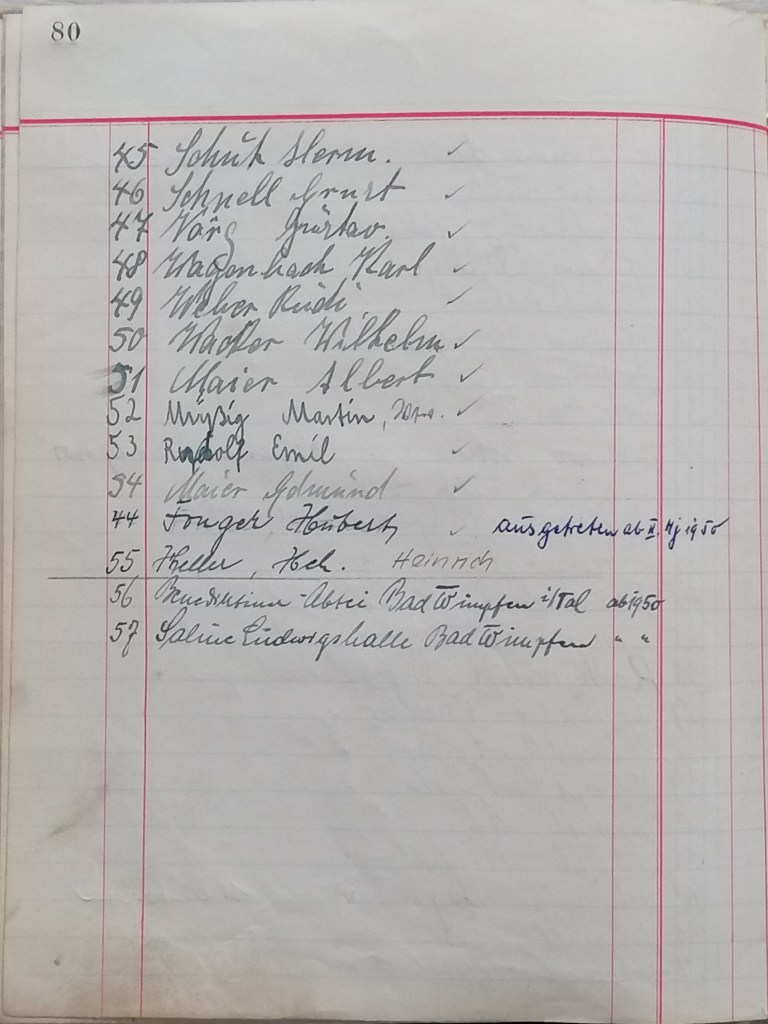 80
45 Schütz Herm. ✓
46 Schnell Ernst ✓
47 Gustav ✓
48 Wagenbach Karl ✓
49 Weber Rudi ✓
50 Wacker Wilhelm ✓
51 Maier Albert ✓
52 Müßig Martin, ✓
53 Rudolf Emil ✓
54 Maier Edmund ✓
44 Hubert ✓ ausgetreten ab II. Hj 1950
55 Heller, Hch. Heinrich
56 Benediktiner-Abtei Bad Wimpfen i/Tal ab 1950
57 Saline Ludwigshalle Bad Wimpfen " "